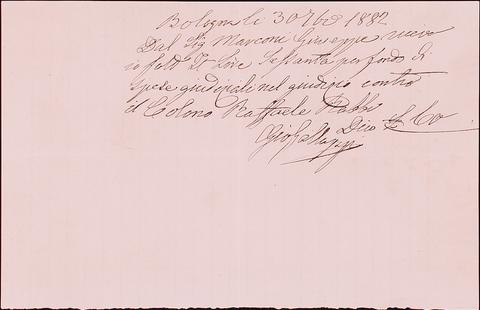 Bologna li 30 7bre 1882
Dal Sig Marconi Giuseppe ricevo
io sott. It Lire Sessanta per fondo di
spese giudiziali nel giudizio contro
il Colono Raffaele Rabbi
Dico 60
Gio